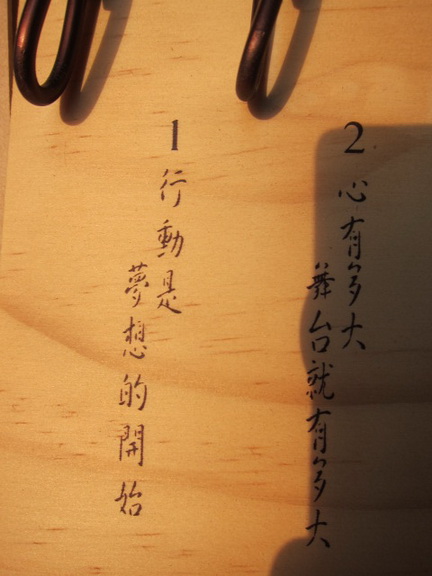 1
行動是
夢想的開始
2
心有多大
舞台就有多大